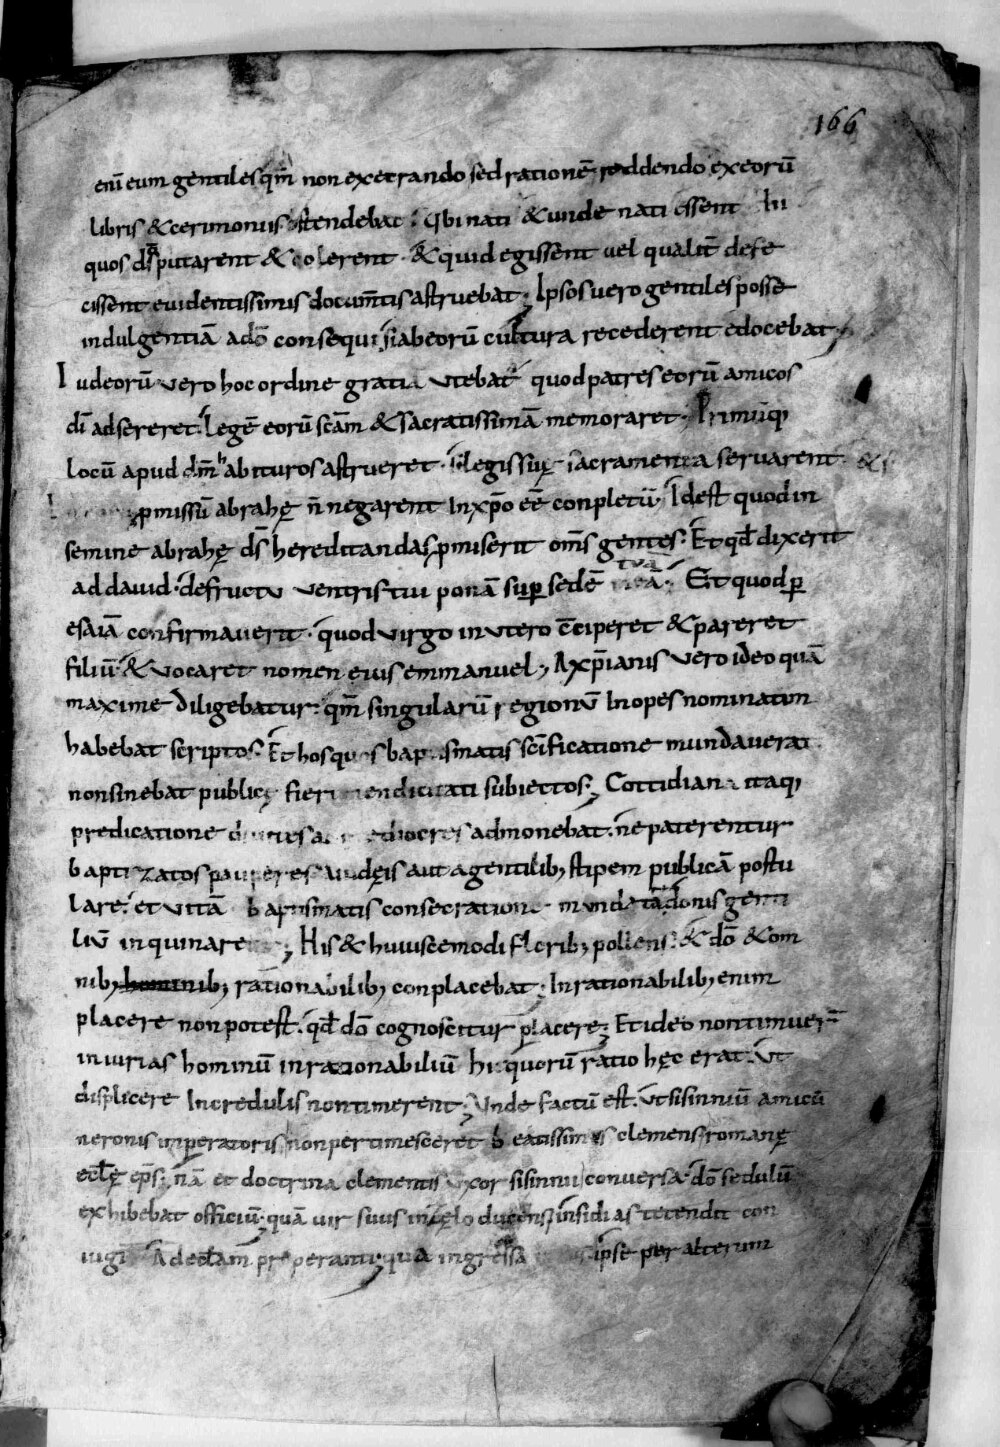 166
enī eum gentiles qm̄ non execrando sed rationē reddendo ex eorū
libris & cerimoniis ostendebat . Ubi nati & unde nati essent In
quos disputarent & colerent . & quid egissent vel qualit̄ defe
cissent evidentissimis documtis astruebat ; Ipsos vero gentiles posse
indulgentiā a dō consequi si ab eorū cultura recederent edocebat ;
Iudeorū vero hoc ordine gratia utebat quod patres eorū amicos
dī adsereret . Legē eorū scām & sacratissimā memoraret . Primūq;
locū apud dm̄ habituros astrueret . si legis suę sacramenta servarent . &
p̄missū abrahę n̄ negarent in xp̄o eē conpletū . Id est quod in
semine abrahę ds̄ hereditandas p̄miserit om̄s gentes . Et qđ dixerit
ad david . de fructu ventris tui ponā sup̱ sedē tuā . Et quod p̱
esaiā confirmaverit . quod virgo in utero c̄ciperet & pareret
filiū . & vocaret nomen eius emmanuel ; A xp̄ianis vero ideo quā
maxime diligebatur . qm̄ singularū regionū inopes nominatim
habebat scriptos . Et hos quos baptismatis scīficatione mundaverat
non sinebat publicę fieri mendicitati subiectos ; Cottidiana itaq;
predicatione divites ac mediocres admonebat . ne paterentur
baptizatos pauperes a iudęis aut a gentilib; stipem publicā postu
lare . et vitā baptismatis consecratione mundatā donis genti
liū inquinare ; His & huiuscemodi florib; pollens . & dō & om
nib; hominib; rationabilib; conplacebat . Inrationabilib; enim
placere non potest . qđ dō cognoscitur placere ; Et ideo non timuer̄
iniurias hominū inrationabiliū hi quorū ratio hęc erat . Ut
displicere incredulis non timerent ; Unde factū est . ut sisinniū amicū
neronis imperatoris non pertimesceret beatissimus clemens romanę
ecl̄ę ep̄s . nā et doctrina clementis uxor sisinnii conversa . dō sedulū
exhibebat officiū . quā vir suus in zelo ducens insidias tetendit con
iugi Ad ecl̄am properanti ; qua ingressa ipse per alterum